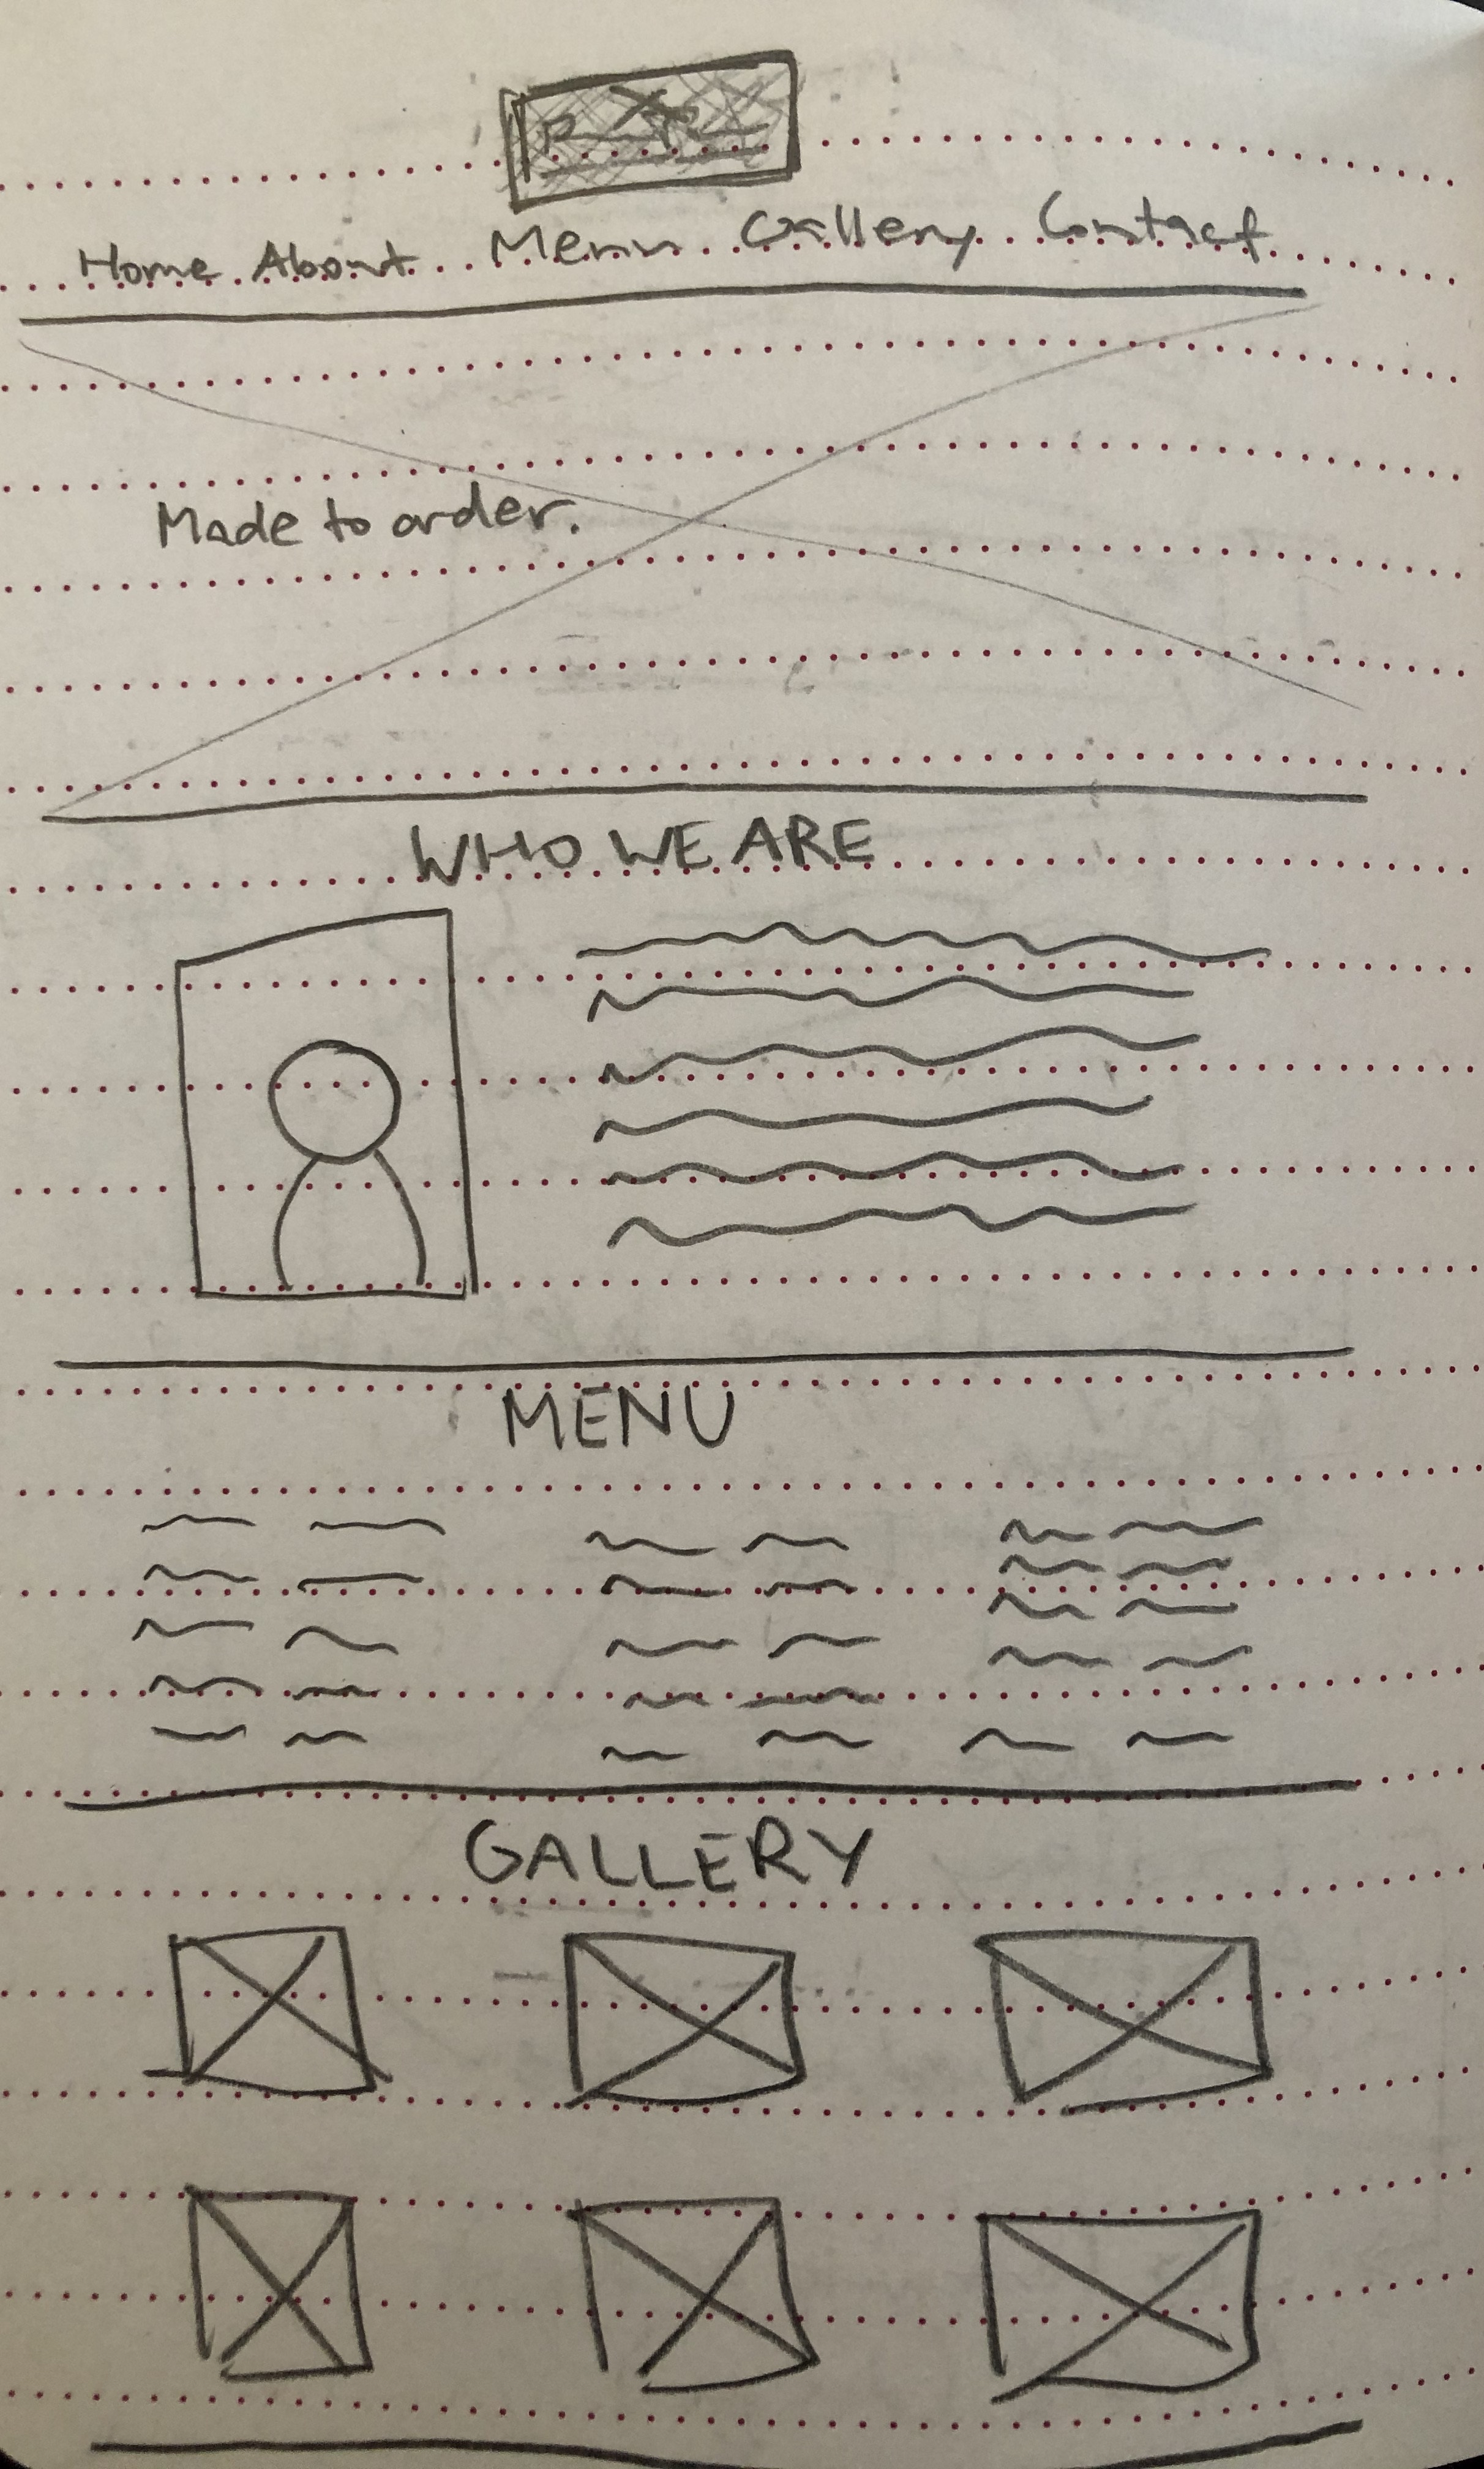 Home About Menu Gallery Contact
Made to order.
WHO WE ARE
MENU
GALLERY